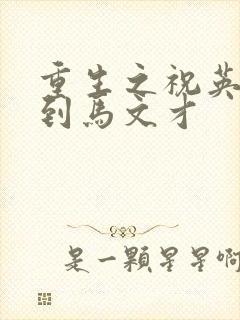 重生之祝英
到马文才
是一顆星星啊